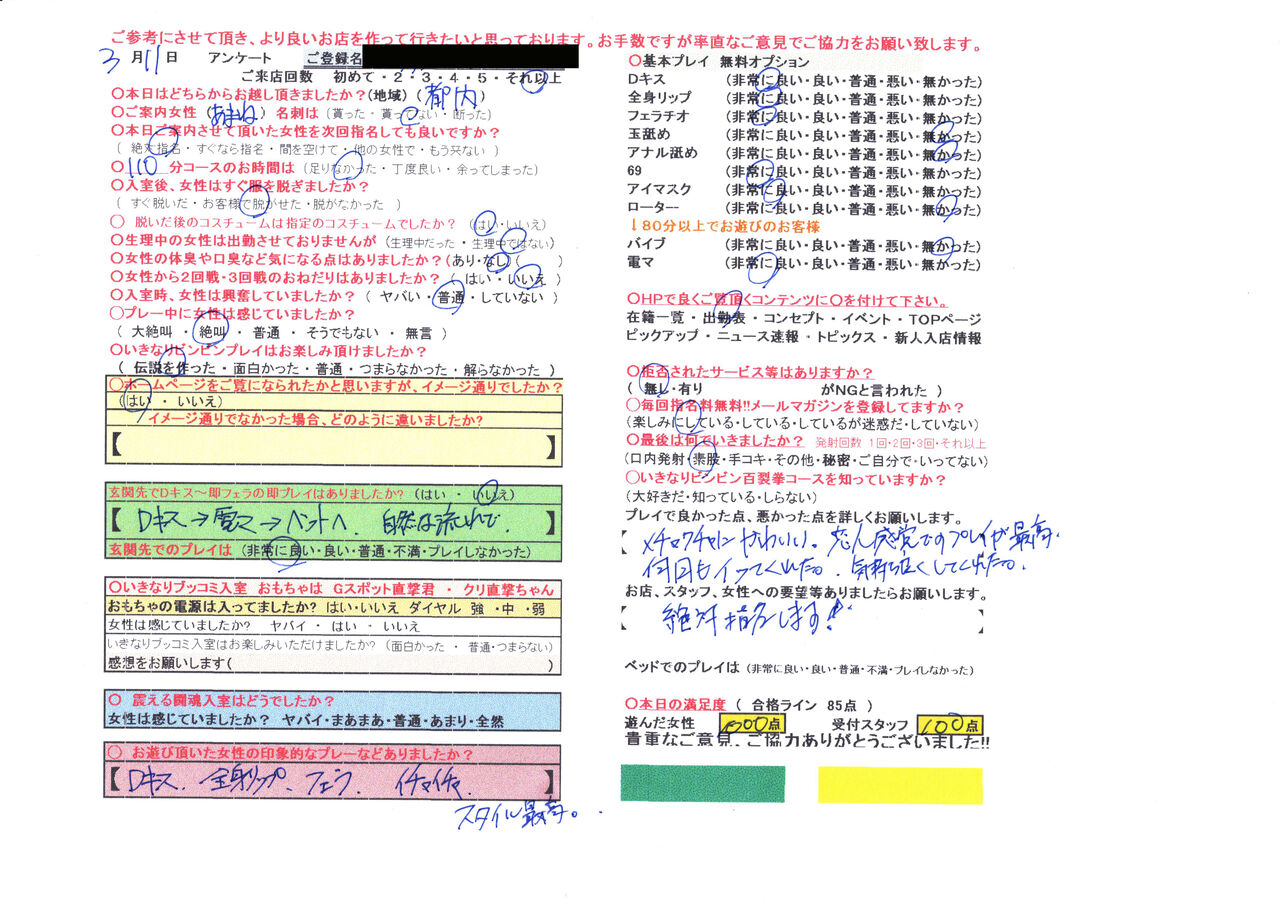 ご参考にさせて頂き、より良いお店を作って行きたいと思っております。お手数ですが率直なご意見でご協力をお願い致します。
3月11日 アンケート ご登録名
ご来店回数 初めて・2・3・4・5・それ以上
〇本日はどちらからお越し頂きましたか?(地域)( 都内 )
〇ご案内女性 (あまね) 名刺は (貰った・貰ってない・断った)
〇本日ご案内させて頂いた女性を次回指名しても良いですか?
( 絶対指名・すぐなら指名・間を空けて・他の女性で・もう来ない )
〇110分コースのお時間は (足りなかった・丁度良い・余ってしまった)
〇入室後、女性はすぐ服を脱ぎましたか?
( すぐ脱いだ・お客様で脱がせた・脱がなかった )
〇 脱いだ後のコスチュームは指定のコスチュームでしたか? (はい・いいえ)
〇生理中の女性は出勤させておりませんが (生理中だった・生理中ではない)
〇女性の体臭や口臭など気になる点はありましたか?(あり・なし)( )
〇女性から2回戦・3回戦のおねだりはありましたか? ( はい・いいえ )
〇入室時、女性は興奮していましたか? ( ヤバい・普通・していない )
〇プレー中に女性は感じていましたか?
( 大絶叫 ・ 絶叫 ・ 普通 ・ そうでもない ・ 無言 )
〇いきなりビンビンプレイはお楽しみ頂けましたか?
( 伝説を作った・面白かった・普通・つまらなかった・解らなかった )
〇ホームページをご覧になられたかと思いますが、イメージ通りでしたか?
(はい ・ いいえ)
イメージ通りでなかった場合、どのように違いましたか?
【 】
玄関先でDキス～即フェラの即プレイはありましたか? (はい ・ いいえ)
【 Dキス→電マ→ベットへ 自然な流れで. 】
玄関先でのプレイは (非常に良い・良い・普通・不満・プレイしなかった)
〇いきなりブッコミ入室 おもちゃは Gスポット直撃君 ・ クリ直撃ちゃん
おもちゃの電源は入ってましたか? はい・いいえ ダイヤル 強 ・中 ・弱
女性は感じていましたか? ヤバイ ・ はい ・ いいえ
いきなりブッコミ入室はお楽しみいただけましたか? (面白かった ・ 普通・つまらない)
感想をお願いします( )
〇 震える闘魂入室はどうでしたか?
女性は感じていましたか? ヤバイ・まあまあ・普通・あまり・全然
〇 お遊び頂いた女性の印象的なプレーなどありましたか?
【 Dキス、全身リップ、フェラ イチャイチャ. 】
スタイル最高。
〇基本プレイ 無料オプション
Dキス (非常に良い・良い・普通・悪い・無かった)
全身リップ (非常に良い・良い・普通・悪い・無かった)
フェラチオ (非常に良い・良い・普通・悪い・無かった)
玉舐め (非常に良い・良い・普通・悪い・無かった)
アナル舐め (非常に良い・良い・普通・悪い・無かった)
69 (非常に良い・良い・普通・悪い・無かった)
アイマスク (非常に良い・良い・普通・悪い・無かった)
ローター (非常に良い・良い・普通・悪い・無かった)
↓80分以上でお遊びのお客様
バイブ (非常に良い・良い・普通・悪い・無かった)
電マ (非常に良い・良い・普通・悪い・無かった)
〇HPで良くご覧頂くコンテンツに〇を付けて下さい。
在籍一覧・出勤表・コンセプト・イベント・TOPページ
ピックアップ・ニュース速報・トピックス・新人入店情報
〇拒否されたサービス等はありますか?
( 無し・有り がNGと言われた )
〇毎回指名料無料!!メールマガジンを登録してますか?
(楽しみにしている・している・しているが迷惑だ・していない)
〇最後は何でいきましたか? 発射回数 1回・2回・3回・それ以上
(口内発射・素股・手コキ・その他・秘密・ご自分で・いってない)
〇いきなりビンビン百裂拳コースを知っていますか?
(大好きだ・知っている・しらない)
プレイで良かった点、悪かった点を詳しくお願いします。
メチャクチャにかわいい。恋人感覚でのプレイが最高.
何回もイッてくれたの. 気持ち良くしてくれたの.
お店、スタッフ、女性への要望等ありましたらお願いします。
【 絶対指名します! 】
ベッドでのプレイは (非常に良い・良い・普通・不満・プレイしなかった)
〇本日の満足度 ( 合格ライン 85点 )
遊んだ女性 1000点 受付スタッフ 100点
貴重なご意見、ご協力ありがとうございました!!